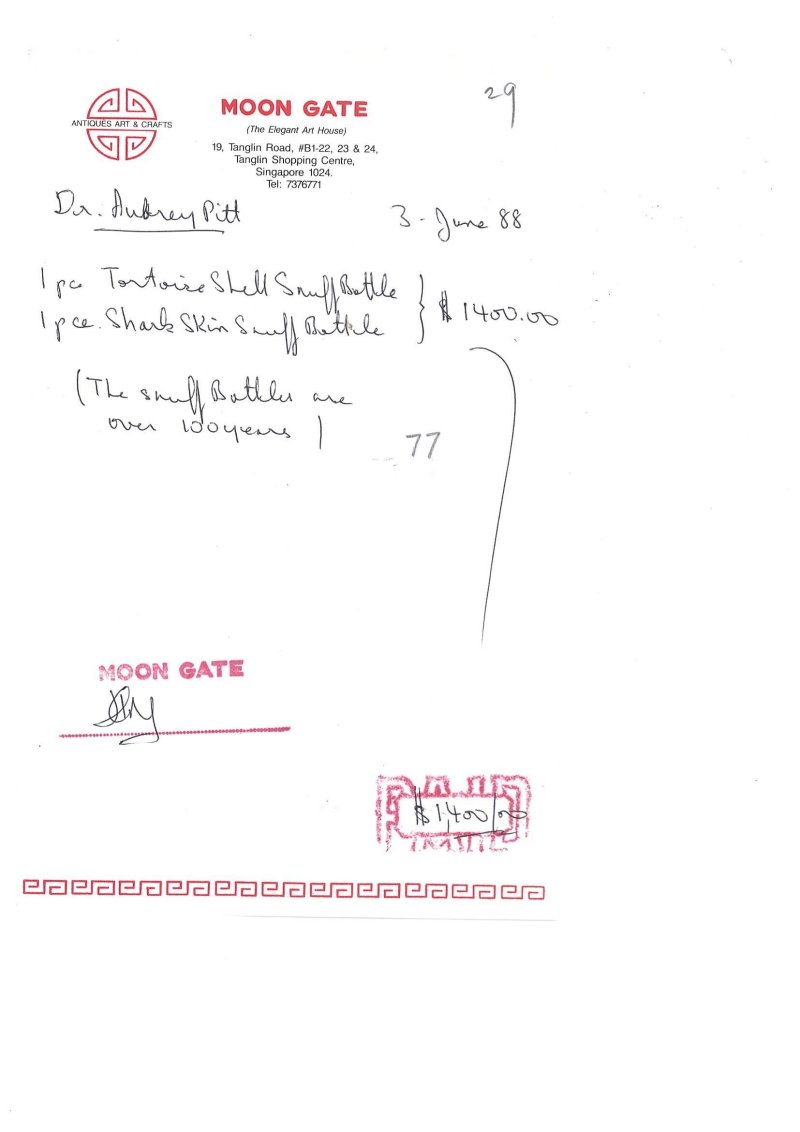 29
ANTIQUES ART & CRAFTS
MOON GATE
(The Elegant Art House)
19, Tanglin Road, #B1-22, 23 & 24,
Tanglin Shopping Centre,
Singapore 1024.
Tel: 7376771
Dr. Aubrey Pitt
3 - June 88
1 pce Tortoise Shell Snuff Bottle
1 pce. Shark Skin Snuff Bottle
$ 1400.00
(The snuff Bottles are
over 100 years)
77
MOON GATE
$1,400/00